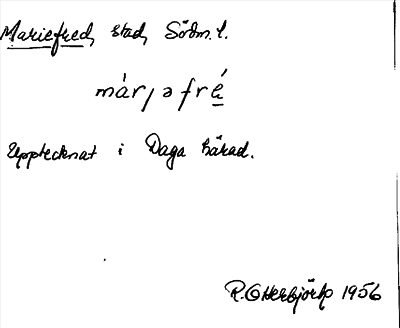 Mariefred, stad, Södm. l.
màrjəfré
Upptecknat i Daga härad.
R. Otterbjörk 1956